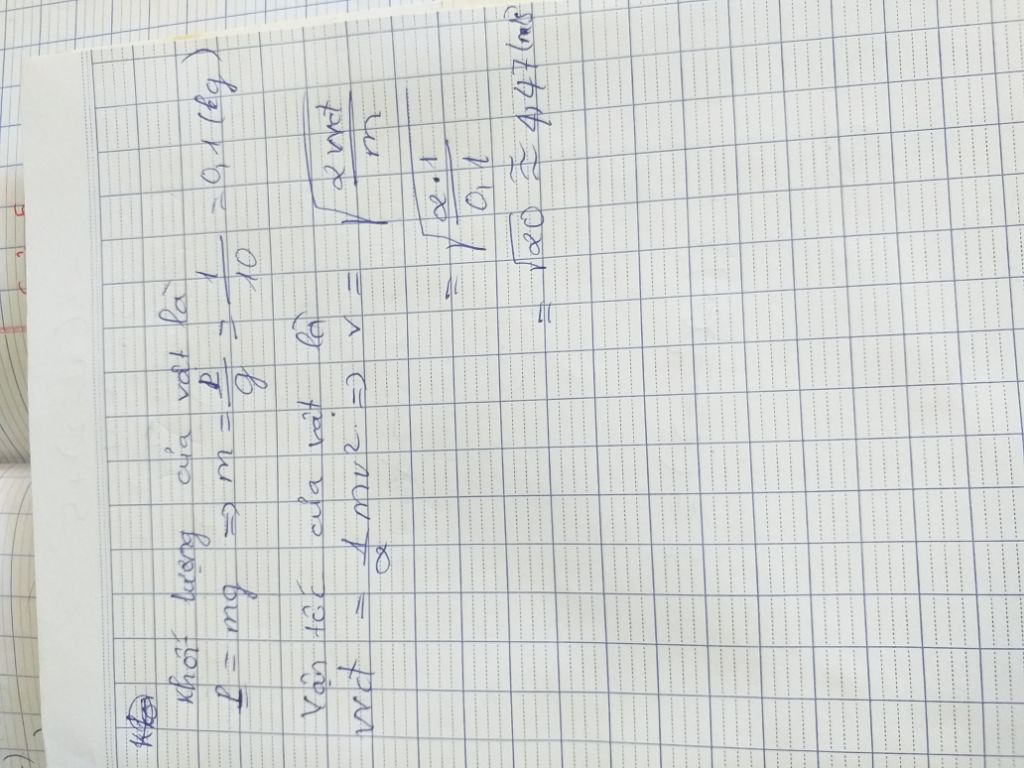 Khối lượng của vật là
P = mg => m = P/g = 1/10 = 0,1 (kg)
Vận tốc của vật là
Wđ = 1/2 mv² => v = √(2Wđ/m)
= √(2.1/0,1)
= √20 ≈ 4,47 (m/s)